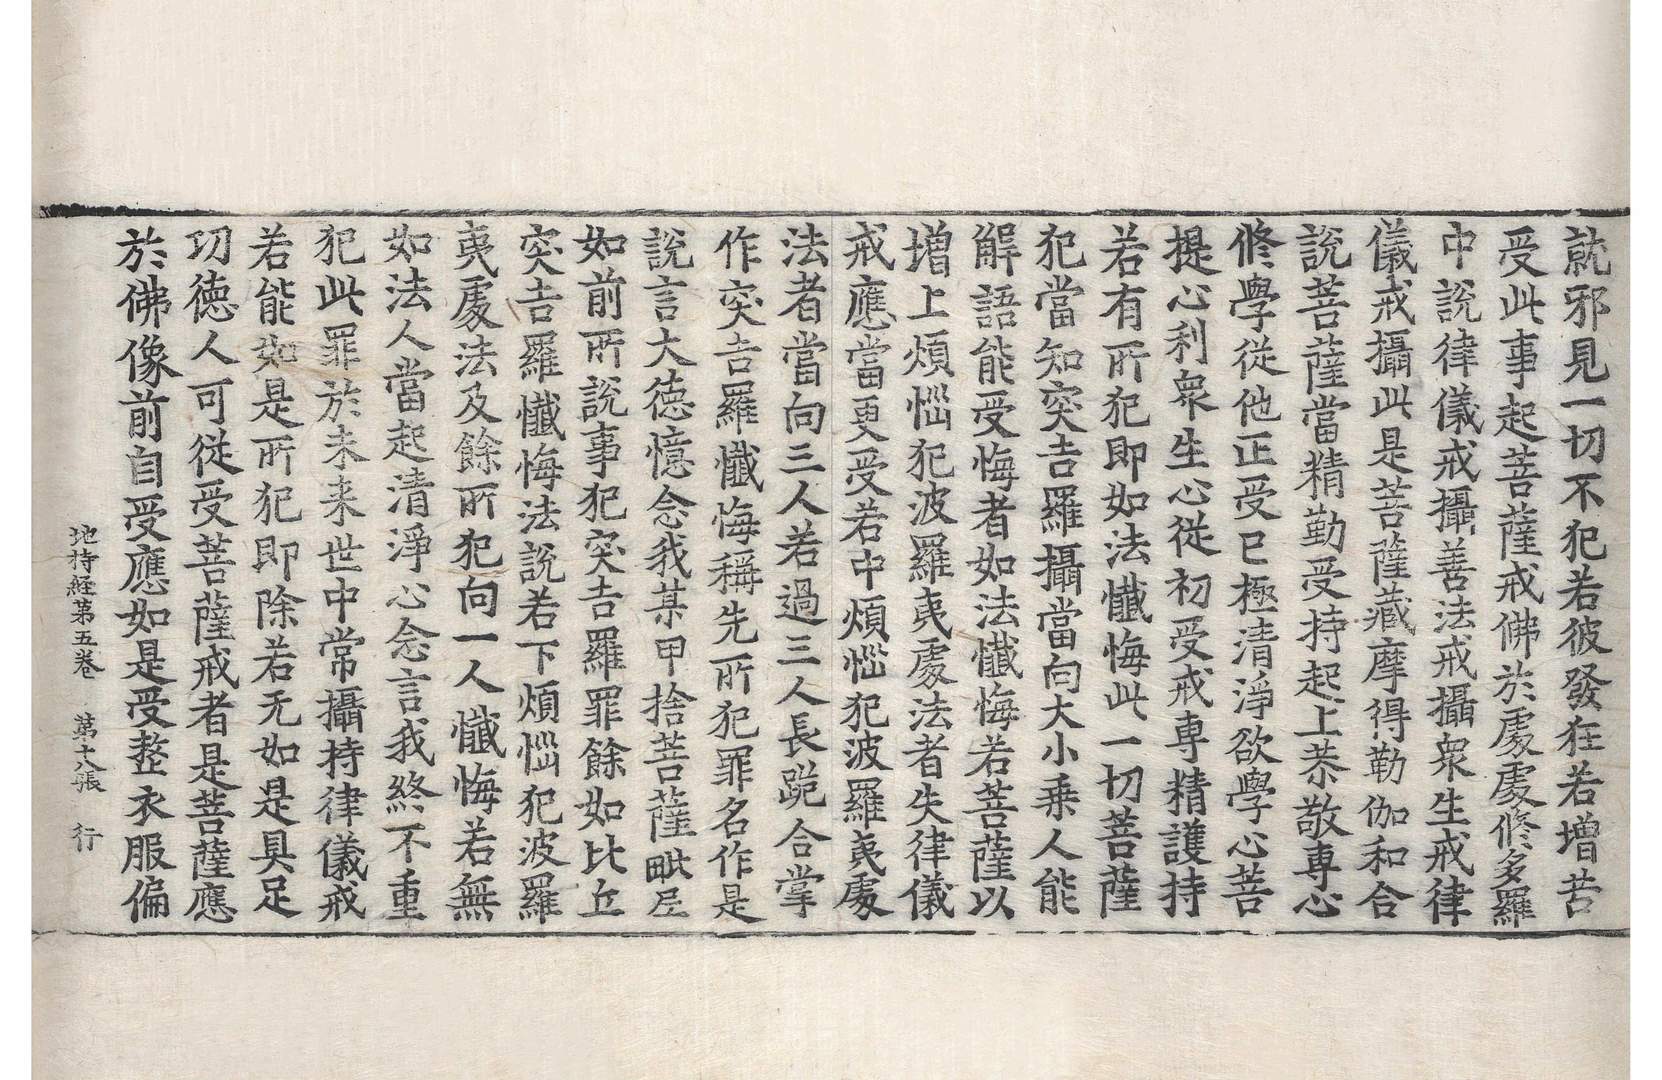 就邪見一切不犯若彼發狂若增苦
受此事起菩薩戒佛於處處修多羅
中說律儀戒攝善法戒攝衆生戒律
儀戒攝此是菩薩藏摩得勒伽和合
說菩薩當精勤受持起上恭敬專心
修學從他正受已極清淨欲學心菩
提心利衆生心從初受戒專精護持
若有所犯即如法懺悔此一切菩薩
犯當知突吉羅攝當向大小乘人能
解語能受悔者如法懺悔若菩薩以
增上煩惱犯波羅夷處法者失律儀
戒應當更受若中煩惱犯波羅夷處
法者當向三人若過三人長跪合掌
作突吉羅懺悔稱先所犯罪名作是
說言大德憶念我某甲捨菩薩毗尼
如前所說事犯突吉羅罪餘如比丘
突吉羅懺悔法說若下煩惱犯波羅
夷處法及餘所犯向一人懺悔若無
如法人當起清淨心念言我終不重
犯此罪於未来世中常攝持律儀戒
若能如是所犯即除若无如是具足
功德人可從受菩薩戒者是菩薩應
於佛像前自受應如是受整衣服偏
地持経第五卷 第十八張 行